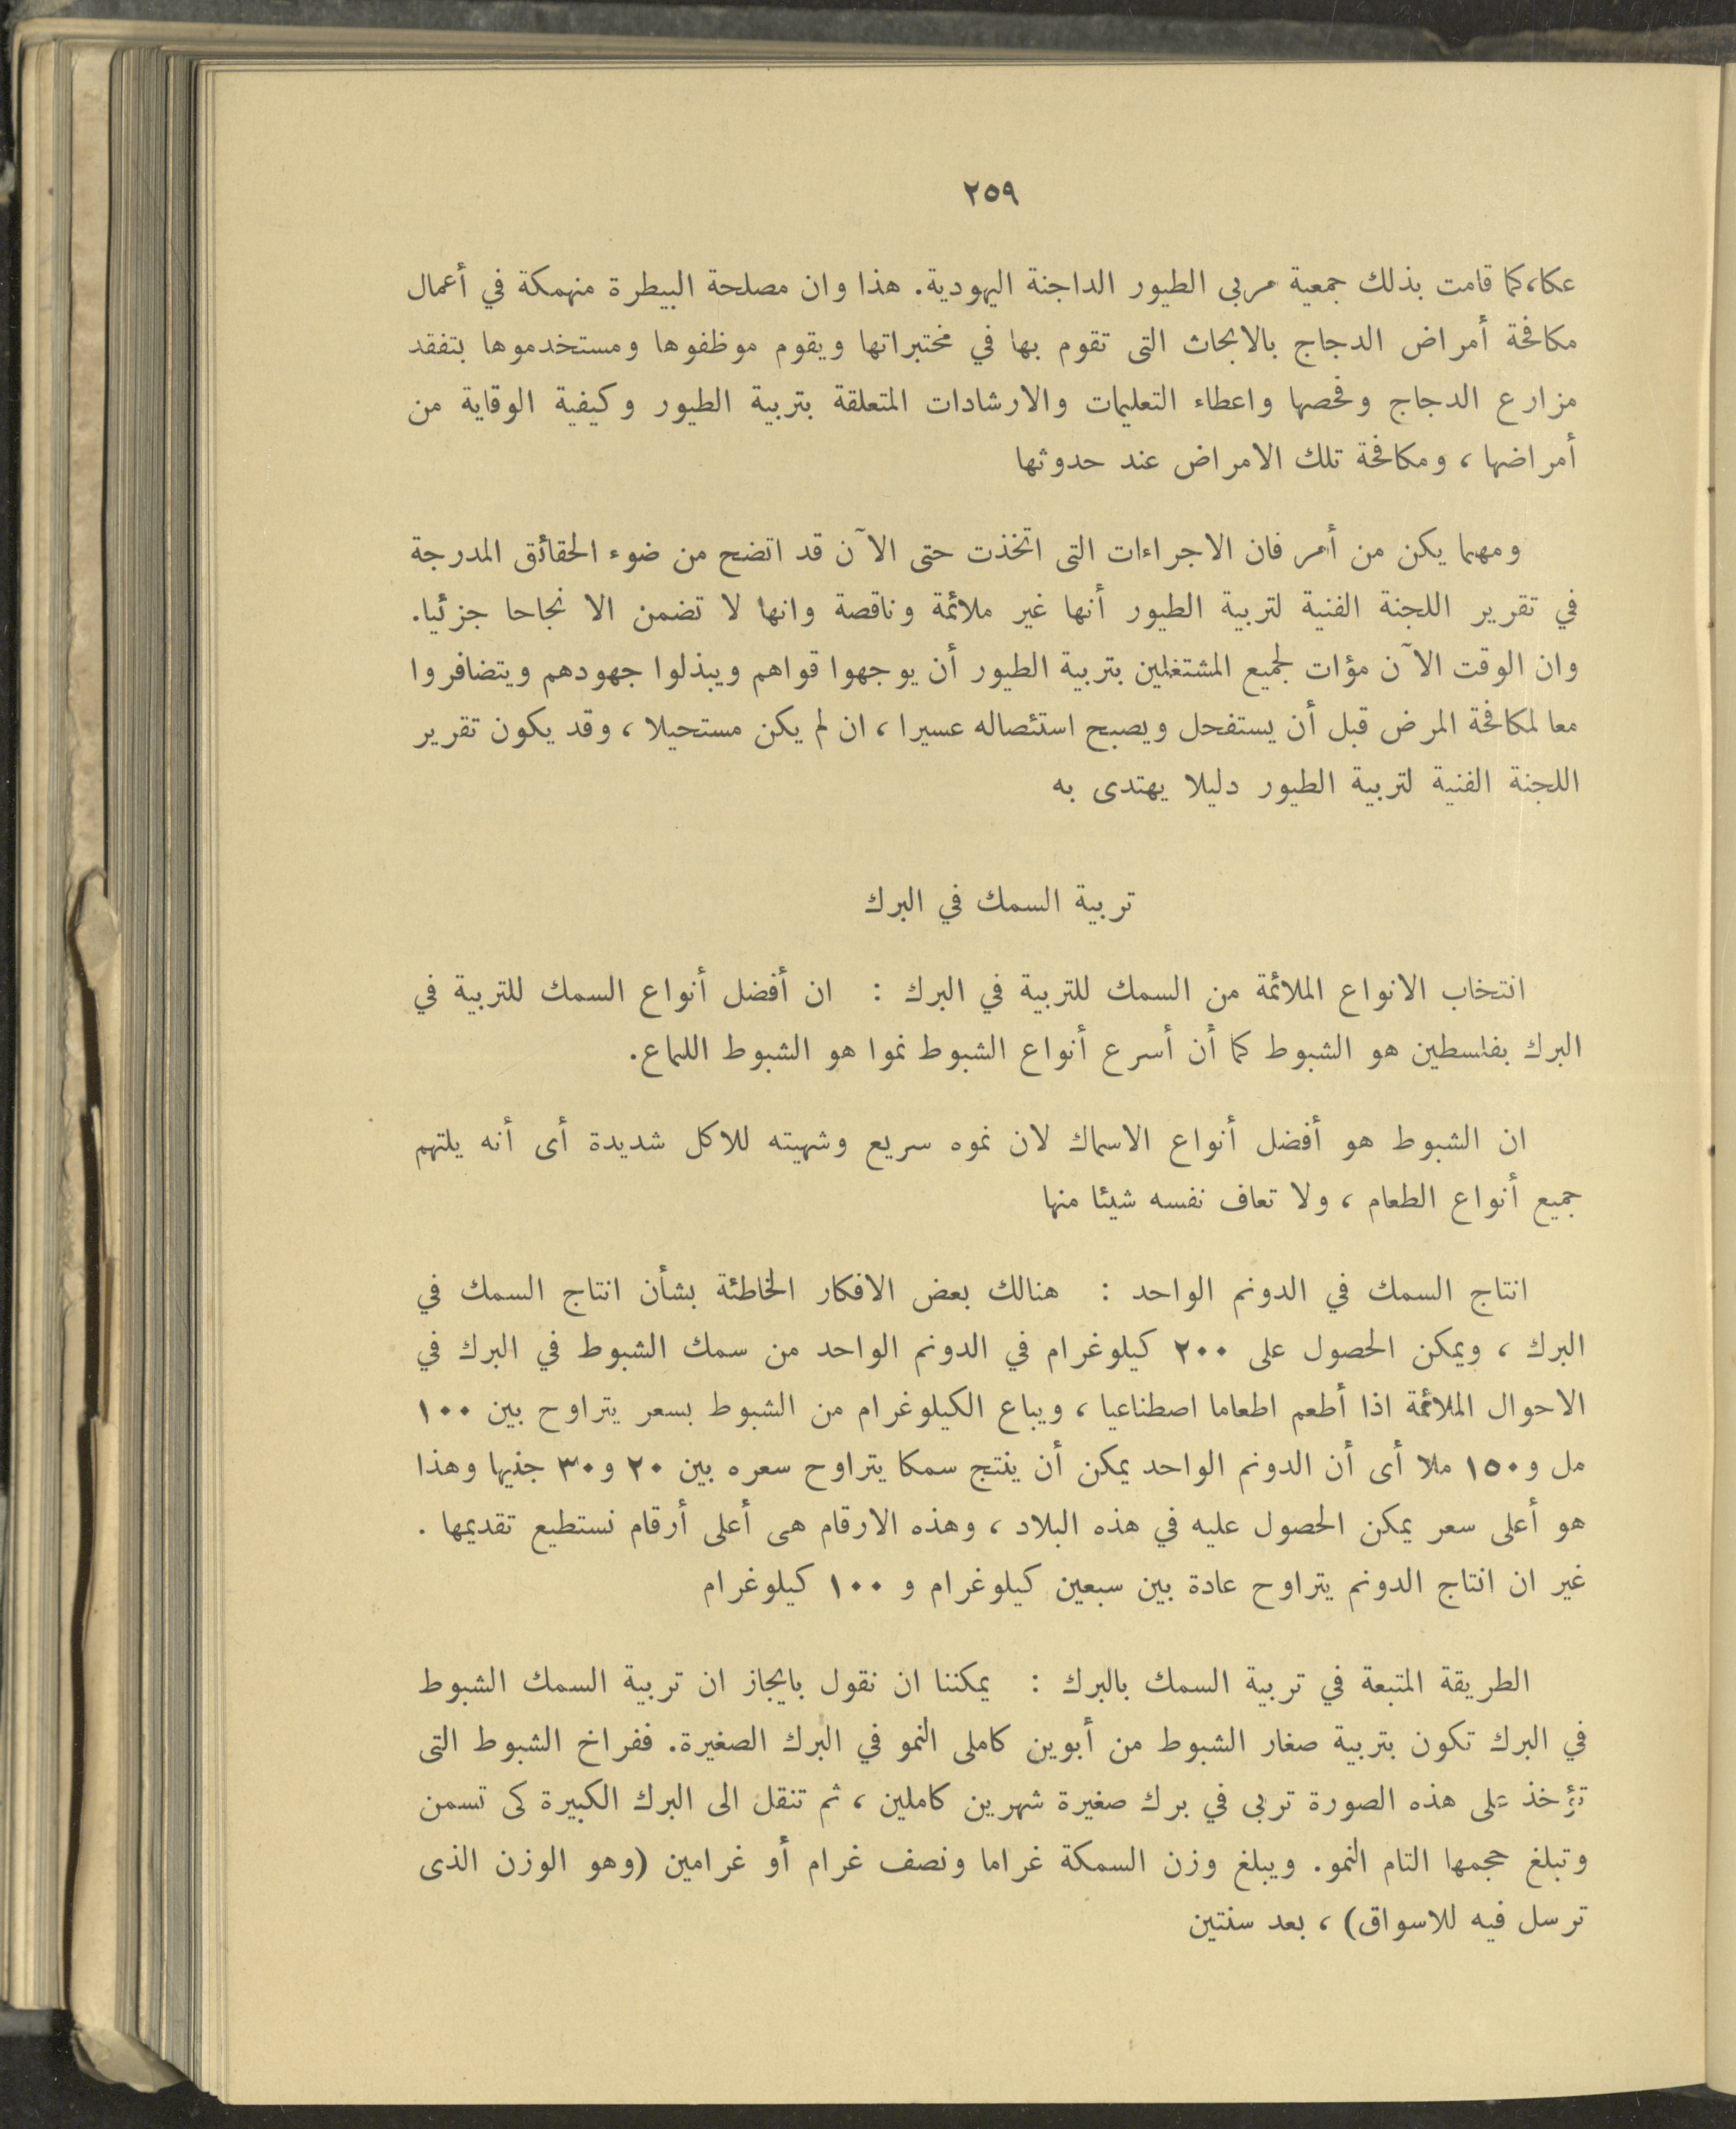 ٢٥٩
عكا، كما قامت بذلك جمعية مربى الطيور الداجنة اليهودية. هذا وان مصلحة البيطرة منهمكة في أعمال
مكافحة أمراض الدجاج بالابحاث التى تقوم بها في مختبراتها ويقوم موظفوها ومستخدموها بتفقد
مزارع الدجاج وفحصها واعطاء التعليمات والارشادات المتعلقة بتربية الطيور وكيفية الوقاية من
أمراضها ، ومكافحة تلك الامراض عند حدوثها
ومهما يكن من أمر فان الاجراءات التى اتخذت حتى الآن قد اتضح من ضوء الحقائق المدرجة
في تقرير اللجنة الفنية لتربية الطيور أنها غير ملائمة وناقصة وانها لا تضمن الا نجاحا جزئيا.
وان الوقت الآن مؤات لجميع المشتغلين بتربية الطيور أن يوجهوا قواهم ويبذلوا جهودهم ويتضافروا
معا لمكافحة المرض قبل أن يستفحل ويصبح استئصاله عسيرا ، ان لم يكن مستحيلا ، وقد يكون تقرير
اللجنة الفنية لتربية الطيور دليلا يهتدى به
تربية السمك في البرك
انتخاب الانواع الملائمة من السمك للتربية في البرك : ان أفضل أنواع السمك للتربية في
البرك بفلسطين هو الشبوط كما أن أسرع أنواع الشبوط نموا هو الشبوط اللماع.
ان الشبوط هو أفضل أنواع الاسماك لان نموه سريع وشهيته للاكل شديدة أى أنه يلتهم
جميع أنواع الطعام ، ولا تعاف نفسه شيئا منها
انتاج السمك في الدونم الواحد : هنالك بعض الافكار الخاطئة بشأن انتاج السمك في
البرك ، ويمكن الحصول على ٢٠٠ كيلوغرام في الدونم الواحد من سمك الشبوط في البرك في
الاحوال الملائمة اذا أطعم اطعاما اصطناعيا ، ويباع الكيلوغرام من الشبوط بسعر يتراوح بين ١٠٠
مل و١٥٠ ملا أى أن الدونم الواحد يمكن أن ينتج سمكا يتراوح سعره بين ٢٠ و٣٠ جنيها وهذا
هو أعلى سعر يمكن الحصول عليه في هذه البلاد ، وهذه الارقام هى أعلى أرقام نستطيع تقديمها .
غير ان انتاج الدونم يتراوح عادة بين سبعين كيلوغرام و ١٠٠ كيلوغرام
الطريقة المتبعة في تربية السمك بالبرك : يمكننا ان نقول بايجاز ان تربية السمك الشبوط
في البرك تكون بتربية صغار الشبوط من أبوين كاملى النمو في البرك الصغيرة. ففراخ الشبوط التى
تؤخذ على هذه الصورة تربى في برك صغيرة شهرين كاملين ، ثم تنقل الى البرك الكبيرة كى تسمن
وتبلغ حجمها التام النمو. ويبلغ وزن السمكة غراما ونصف غرام أو غرامين (وهو الوزن الذى
ترسل فيه للاسواق) ، بعد سنتين